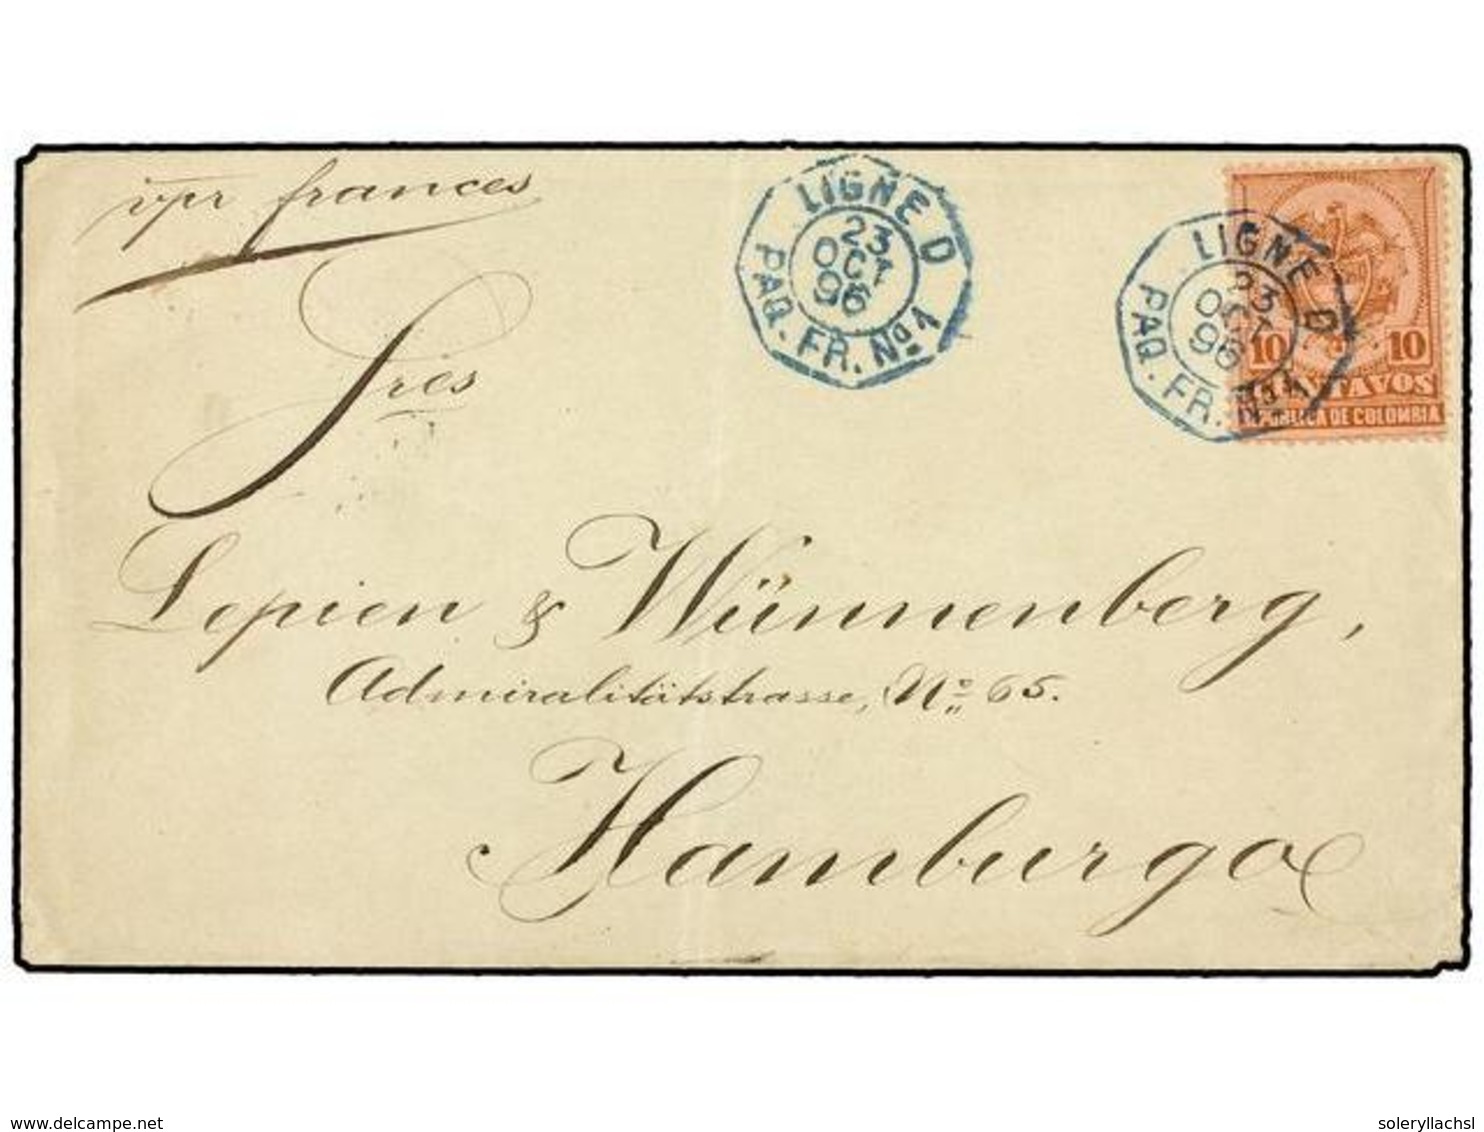 vpr frances
LIGNE D
23
OCT
96
PAQ. FR. Nº 1
LIGNE D
23
OCT
96
PAQ. FR. Nº 1
10 10
CENTAVOS
REPUBLICA DE COLOMBIA
Sres
Lepien & Wünnenberg,
Admiralitätstrasse, Nº 65.
Hamburgo
delcampe.net
soleryllachsl